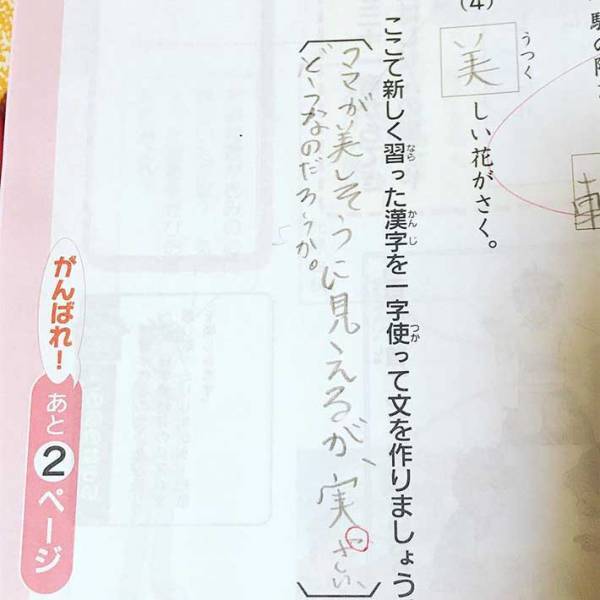 (4)
美しい花がさく。
うつく
ここで新しく習った漢字を一字使って文を作りましょう
なら
かんじ
つか
ママが美しそうに見えるが、実さい、
どうなのだろうか。
がんばれ！
あと2ページ